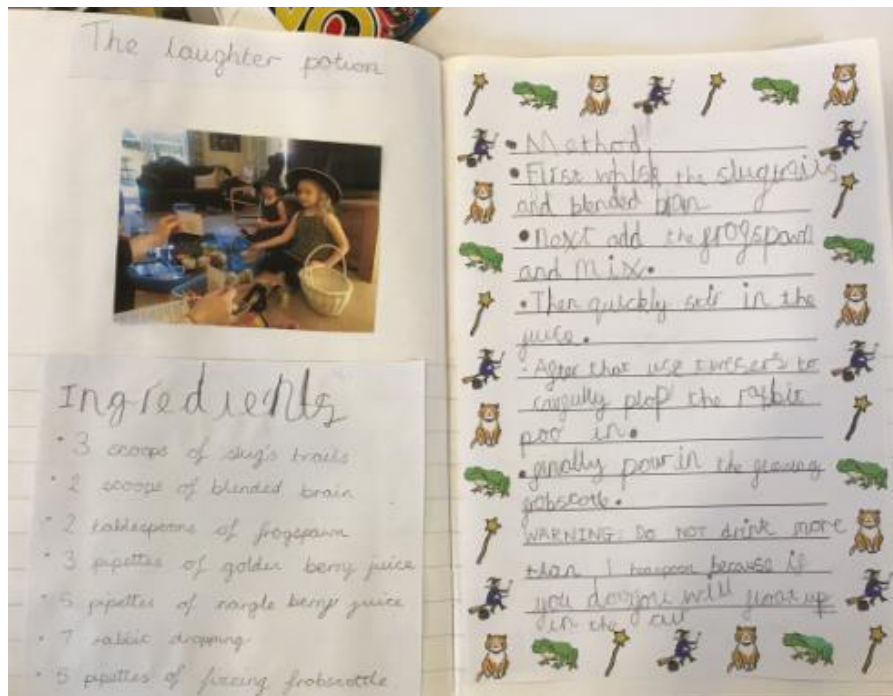 The laughter potion
Ingredients
• 3 scoops of slug's trails
• 2 scoops of blended brain
• 2 tablespoons of frogspawn
• 3 pipettes of golden berry juice
• 5 pipettes of nargle berry juice
• 7 rabbit dropping
• 5 pipettes of fizzing frobscottle
• Method
• First whisk the slug
and blended
• Next add the frogspawn
and mix.
• Then quickly stir in the
juice.
• After that use to
carefully plop the rabbit
poo in.
• finally pour in the
WARNING: DO NOT drink more
than 1 teaspoon because if
you will up
in the